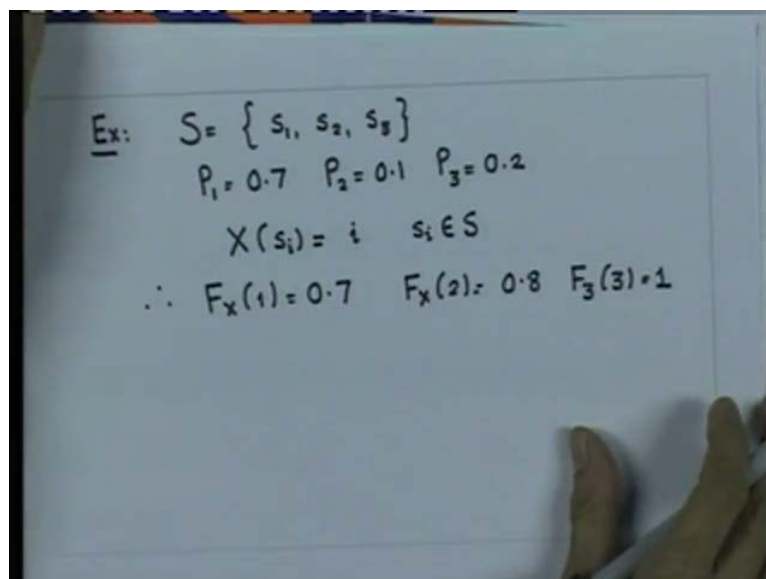 Ex: S= { s₁, s₂, s₃}
P₁= 0.7 P₂= 0.1 P₃= 0.2
X(sᵢ)= i sᵢ ∈ S
∴ Fₓ(1)= 0.7 Fₓ(2)= 0.8 F₃(3)=1